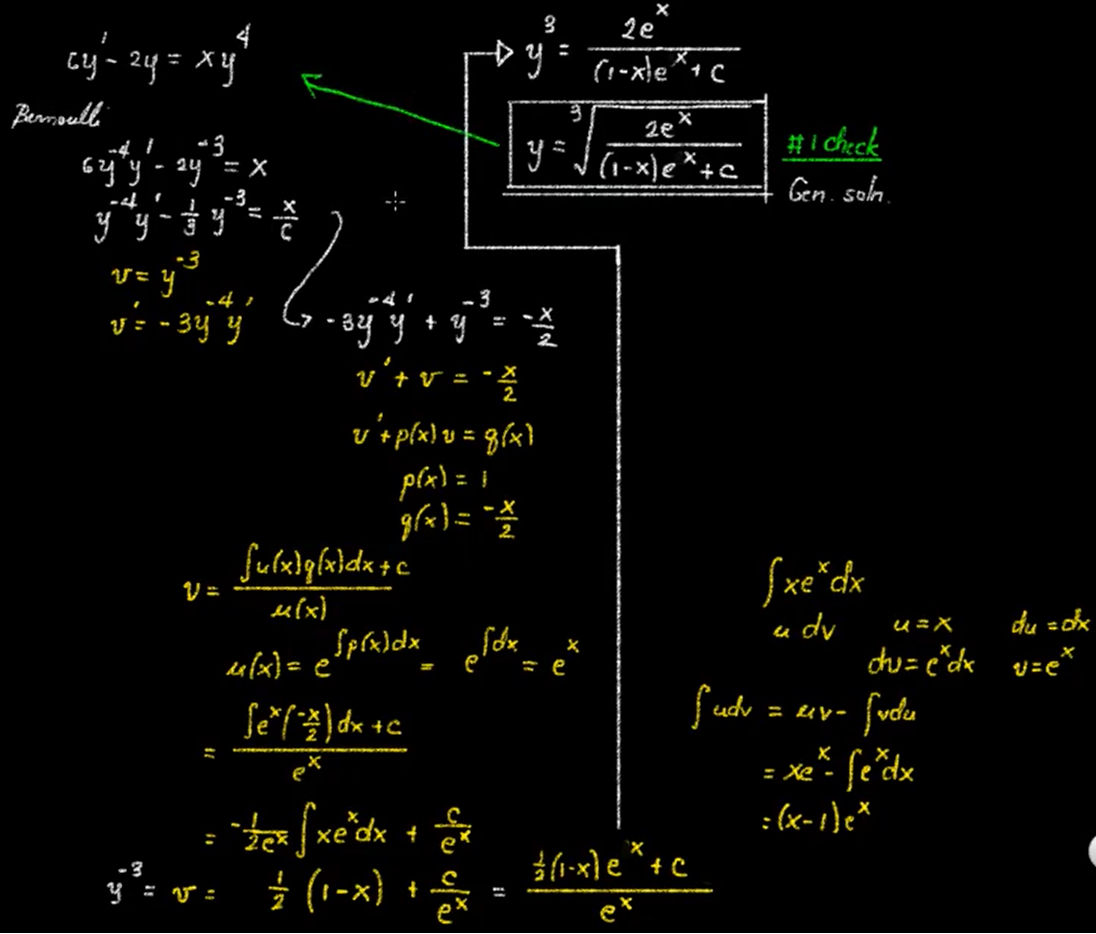 6y' - 2y = xy^4
Bernoulli
6y^-4 y' - 2y^-3 = x
y^-4 y' - 1/3 y^-3 = x/6
v = y^-3
v' = -3y^-4 y'
-3y^-4 y' + y^-3 = -x/2
v' + v = -x/2
v' + p(x)v = q(x)
p(x) = 1
q(x) = -x/2
v = (∫u(x)q(x)dx + c)/u(x)
u(x) = e^∫p(x)dx = e^∫dx = e^x
= (∫e^x(-x/2)dx + c)/e^x
= -1/(2e^x) ∫xe^x dx + c/e^x
y^-3 = v = 1/2 (1-x) + c/e^x = (1/2(1-x)e^x + c)/e^x
y^3 = 2e^x/((1-x)e^x + c)
y = ∛(2e^x/((1-x)e^x + c))
#1 check
Gen. soln.
∫xe^x dx
u dv u = x du = dx
dv = e^x dx v = e^x
∫udv = uv - ∫vdu
= xe^x - ∫e^x dx
= (x-1)e^x